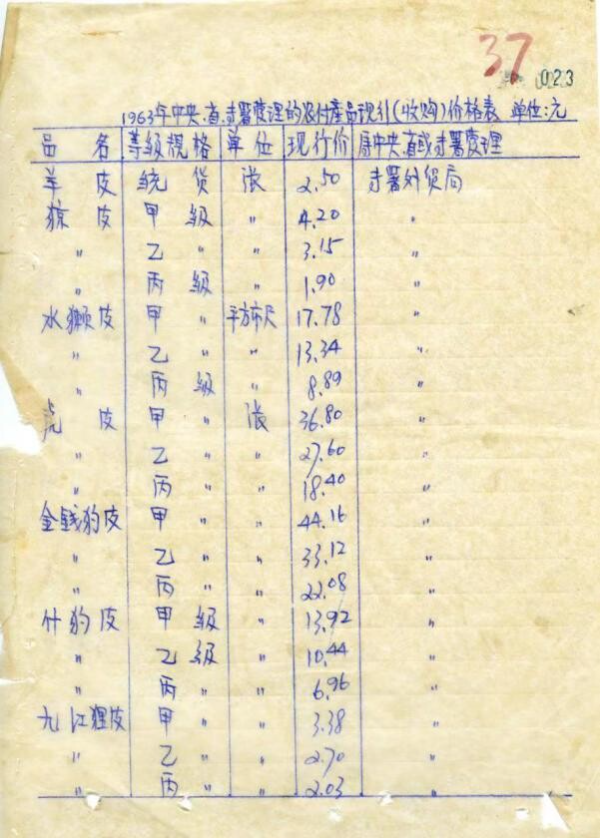 37
023
1963年中央.直.专署管理的农付產品现行(收购)价格表 单位:元
品名 等级規格 单位 现行价 属中央.直或专署管理
羊皮 统货 张 2.50 专署外貿局
猄皮 甲级 〃 4.20 〃
〃 乙〃 〃 3.15 〃
〃 丙级 〃 1.90 〃
水獭皮 甲〃 平方市尺 17.78 〃
〃 乙〃 〃 13.34 〃
〃 丙级 〃 8.89 〃
虎皮 甲〃 张 36.80 〃
〃 乙〃 〃 27.60 〃
〃 丙〃 〃 18.40 〃
金錢豹皮 甲〃 〃 44.16 〃
〃 乙〃 〃 33.12 〃
〃 丙〃 〃 22.08 〃
什豹皮 甲级 〃 13.92 〃
〃 乙级 〃 10.44 〃
〃 丙〃 〃 6.96 〃
九江狸皮 甲〃 〃 3.38 〃
〃 乙〃 〃 2.70 〃
〃 丙〃 〃 2.03 〃